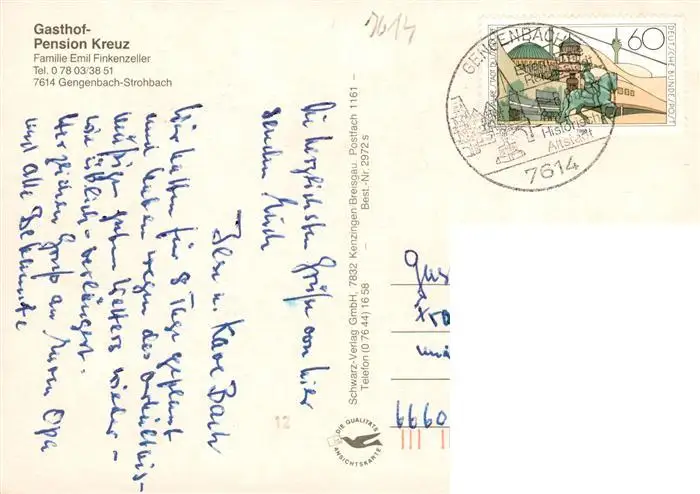 Gasthof-
Pension Kreuz
Familie Emil Finkenzeller
Tel. 0 78 03/38 51
7614 Gengenbach-Strohbach
7614
GENGENBACH
Historische
Altstadt
7614
60
DEUTSCHE BUNDESPOST
Die herzlichsten Grüße von hier
senden Euch
Ilse u. Karl Bach
Wir hatten für 8 Tage geplant
und haben wegen des verhältnis-
mäßigen guten Wetters wieder -
wie üblich - verlängert.
Herzlichen Gruß an Euren Opa
und alle Bekannte
Schwarz-Verlag GmbH, 7832 Kenzingen Breisgau, Postfach 1161 –
Telefon (0 76 44) 16 58 – Best.-Nr. 2972 s
DIE QUALITÄTS
ANSICHTSKARTE
12
6660